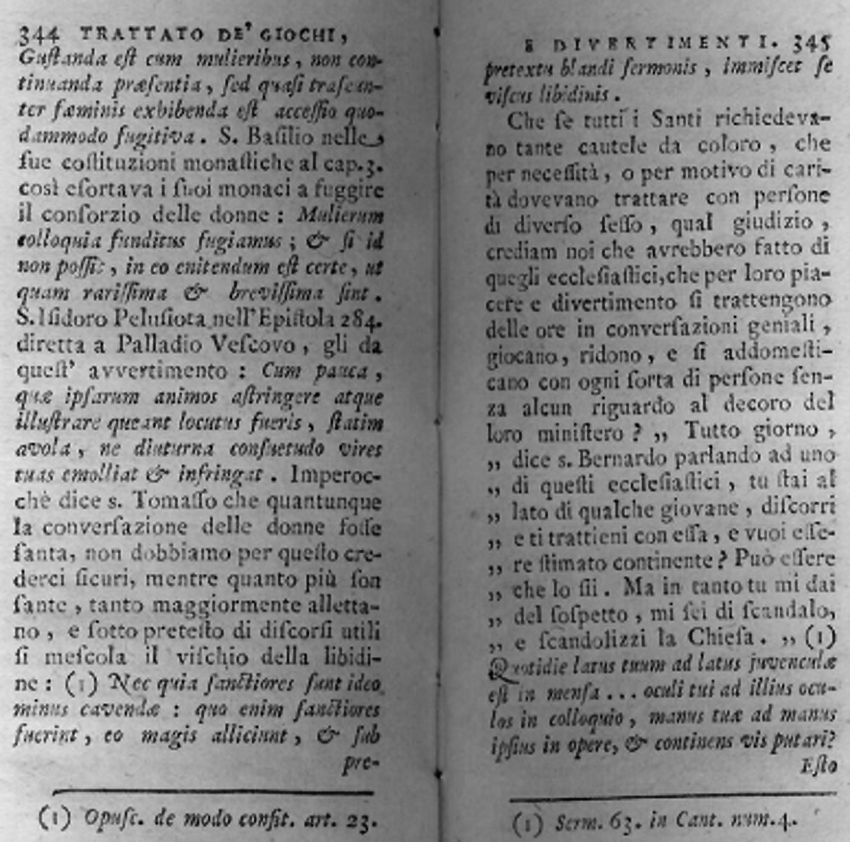 344 TRATTATO DE' GIOCHI,
Guſtanda eſt cum mulieribus, non con-
tinuanda præſentia, ſed quaſi tranſeun-
ter fæminis exhibenda eſt acceſſio quo-
dammodo fugitiva. S. Baſilio nelle
ſue coſtituzioni monaſtiche al cap.3.
così eſortava i ſuoi monaci a fuggire
il conſorzio delle donne: Mulierum
colloquia funditus fugiamus; & ſi id
non poſſit, in eo enitendum eſt certe, ut
quam rariſſima & breviſſima ſint.
S. Iſidoro Peluſiota nell'Epiſtola 284.
diretta a Palladio Veſcovo, gli da
queſt' avvertimento: Cum pauca,
quæ ipſarum animos aſtringere atque
illuſtrare queant locutus fueris, ſtatim
avola, ne diuturna conſuetudo vires
tuas emolliat & infringat. Imperoc-
chè dice s. Tomaſſo che quantunque
la converſazione delle donne foſſe
ſanta, non dobbiamo per queſto cre-
derci ſicuri, mentre quanto più ſon
ſante, tanto maggiormente alletta-
no, e ſotto preteſto di diſcorſi utili
ſi meſcola il viſchio della libidi-
ne: (1) Nec quia ſanctiores ſunt ideo
minus cavendæ: quo enim ſanctiores
fuerint, eo magis alliciunt, & ſub
pre-
(1) Opuſc. de modo confit. art. 23.
E DIVERTIMENTI. 345
pretextu blandi ſermonis, immiſcet ſe
viſcus libidinis.
Che ſe tutti i Santi richiedeva-
no tante cautele da coloro, che
per neceſſità, o per motivo di cari-
tà dovevano trattare con perſone
di diverſo ſeſſo, qual giudizio,
crediam noi che avrebbero fatto di
quegli eccleſiaſtici, che per loro pia-
cere e divertimento ſi trattengono
delle ore in converſazioni geniali,
giocano, ridono, e ſi addomeſti-
cano con ogni ſorta di perſone ſen-
za alcun riguardo al decoro del
loro miniſtero? „ Tutto giorno,
„ dice s. Bernardo parlando ad uno
„ di queſti eccleſiaſtici, tu ſtai al
„ lato di qualche giovane, diſcorri
„ e ti trattieni con eſſa, e vuoi eſſe-
„ re ſtimato continente? Può eſſere
„ che lo ſii. Ma in tanto tu mi dai
„ del ſoſpetto, mi ſei di ſcandalo,
„ e ſcandolizzi la Chieſa. „ (1)
Quotidie latus tuum ad latus juvenculæ
eſt in menſa ... oculi tui ad illius ocu-
los in colloquio, manus tuæ ad manus
ipſius in opere, & continens vis putari?
Eſto
(1) Serm. 63. in Cant. num.4.